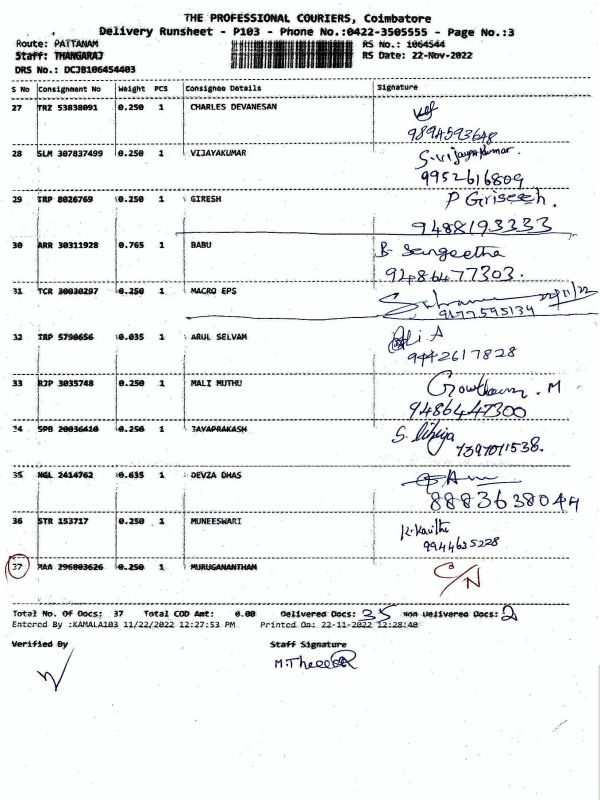 THE PROFESSIONAL COURIERS, Coimbatore
Delivery Runsheet - P103 - Phone No.:0422-3505555 - Page No.:3
Route: PATTANAM RS No.: 1064544
Staff: THANGARAJ RS Date: 22-Nov-2022
DRS No.: DCJB106454403
S No Consignment No Weight PCS Consignee Details Signature
27 TRZ 53838091 0.250 1 CHARLES DEVANESAN
9894593648
28 SLM 307837499 0.250 1 VIJAYAKUMAR S.Vijayakumar.
9952616809
29 TRP 8026769 0.250 1 GIRESH P Grisesh.
9488193333
30 ARR 30311928 0.765 1 BABU B. Sangeetha
9486477303.
31 TCR 30030297 0.250 1 MACRO EPS 22/11/22
9177595134
32 TRP 5790656 0.035 1 ARUL SELVAM
9442617828
33 RJP 3035748 0.250 1 MALI MUTHU Gowtham. M
9486447300
34 SPB 20036410 0.250 1 JAYAPRAKASH S.
7397071538.
35 NGL 2414762 0.635 1 DEVZA DHAS
8883638044
36 STR 153717 0.250 1 MUNEESWARI K. Kavitha
9944635228
37 MAA 296003626 0.250 1 MURUGANANTHAM C/N
Total No. Of Docs: 37 Total COD Amt: 0.00 Delivered Docs: 35 Non Delivered Docs: 2
Entered By :KAMALA103 11/22/2022 12:27:53 PM Printed On: 22-11-2022 12:28:40
Verified By Staff Signature